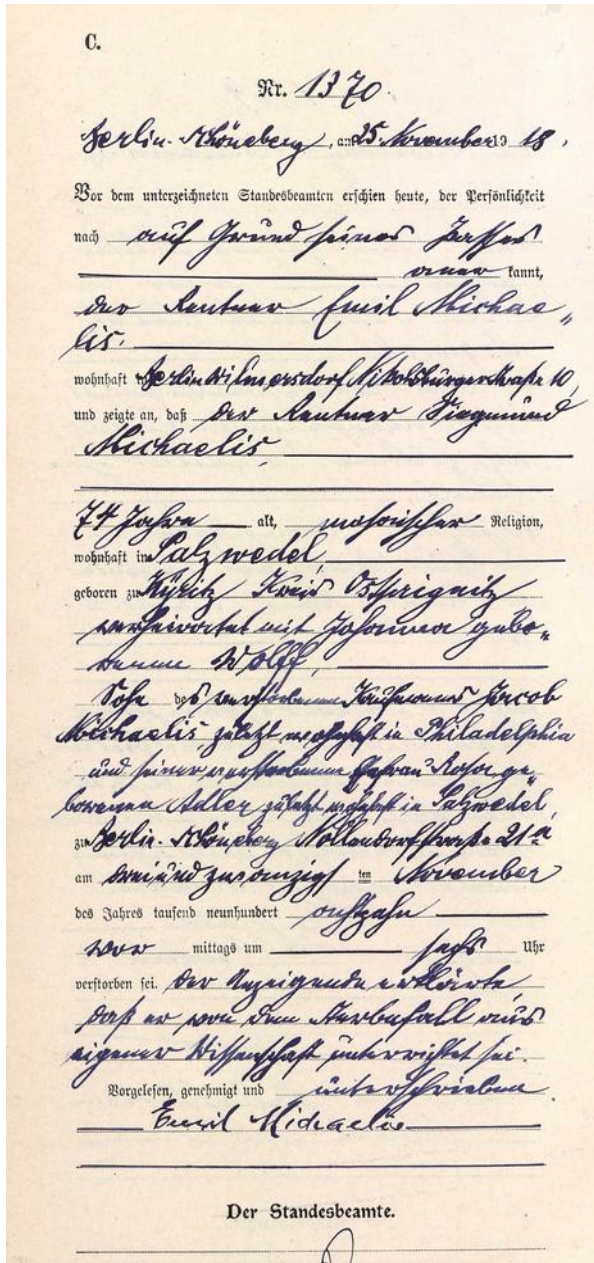 C.
Nr. 1370.
Berlin-Schöneberg, am 25. November 1918.
Vor dem unterzeichneten Standesbeamten erschien heute, der Persönlichkeit
nach auf Grund seines Passes
aner kannt,
der Rentner Emil Michae„
lis.
wohnhaft in Berlin Wilmersdorf, Nikolsburgerstraße 10,
und zeigte an, daß der Rentner Siegmund
Michaelis,
74 Jahre alt, mosaischer Religion,
wohnhaft in Salzwedel,
geboren zu Kyritz Kreis Ostprignitz
verheiratet mit Johanna gebo„
renene Wolff,
Sohn des verstorbenen Kaufmanns Jacob
Michaelis zuletzt wohnhaft in Philadelphia
und seiner verstorbenen Ehefrau Rosa ge„
borenen Adler zuletzt wohnhaft in Salzwedel,
zu Berlin-Schöneberg Nollendorfstraße 21a
am dreiundzwanzigs ten November
des Jahres tausend neunhundert achtzehn
vor mittags um sechs Uhr
verstorben sei. Der Anzeigende erklärte,
daß er von dem Sterbefall aus
eigener Wissenschaft unterrichtet sei.
Vorgelesen, genehmigt und unterschrieben
Emil Michaelis
Der Standesbeamte.